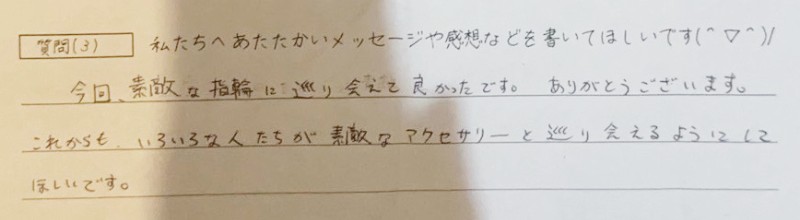 質問(3) 私たちへあたたかいメッセージや感想などを書いてほしいです(^▽^)/
今回、素敵な指輪に巡り会えて良かったです。 ありがとうございます。
これからも、いろいろな人たちが素敵なアクセサリーと巡り会えるようにして
ほしいです。